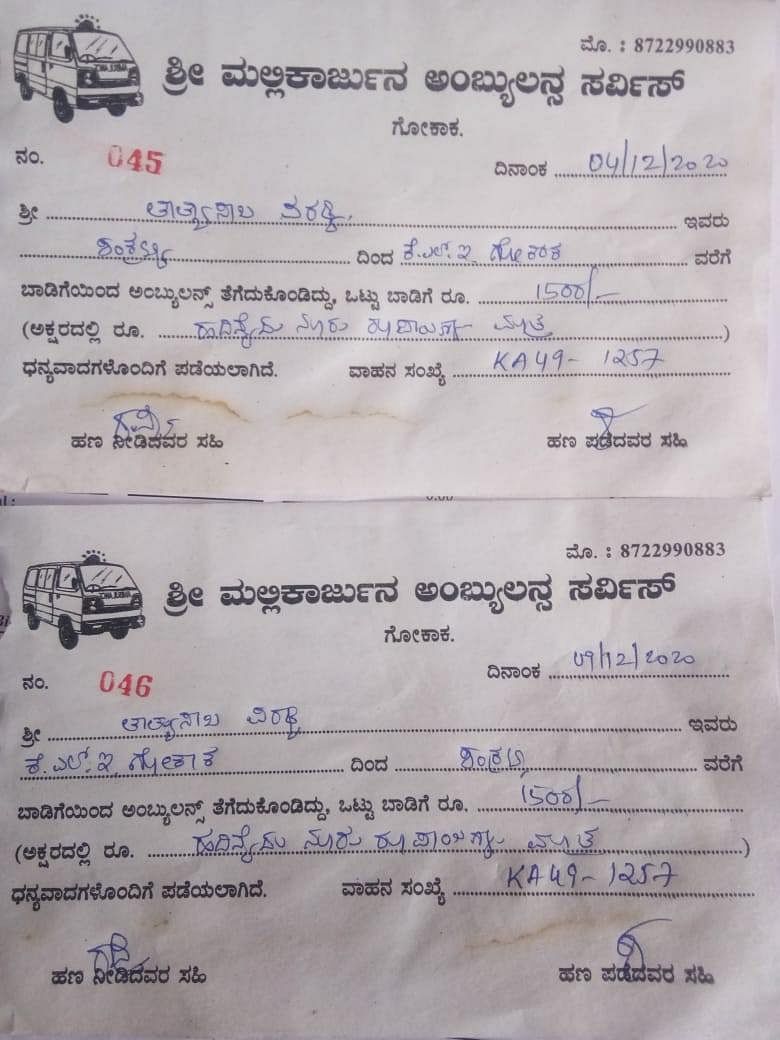 ಮೊ. : 8722990883
ಶ್ರೀ ಮಲ್ಲಿಕಾರ್ಜುನ ಅಂಬ್ಯುಲನ್ಸ ಸರ್ವಿಸ್
ಗೋಕಾಕ.
ನಂ. 045 ದಿನಾಂಕ 04/12/2020
ಶ್ರೀ ಇವರು
ದಿಂದ ಕೆ.ಎಲ್.ಇ. ಗೋಕಾಕ ವರೆಗೆ
ಬಾಡಿಗೆಯಿಂದ ಅಂಬ್ಯುಲನ್ಸ್ ತೆಗೆದುಕೊಂಡಿದ್ದು, ಒಟ್ಟು ಬಾಡಿಗೆ ರೂ. 1500/-
(ಅಕ್ಷರದಲ್ಲಿ ರೂ. ಹದಿನೈದು ನೂರು ರೂಪಾಯಿಗಳು ಮಾತ್ರ)
ಧನ್ಯವಾದಗಳೊಂದಿಗೆ ಪಡೆಯಲಾಗಿದೆ. ವಾಹನ ಸಂಖ್ಯೆ KA49-1257
ಹಣ ನೀಡಿದವರ ಸಹಿ ಹಣ ಪಡೆದವರ ಸಹಿ
ಮೊ. : 8722990883
ಶ್ರೀ ಮಲ್ಲಿಕಾರ್ಜುನ ಅಂಬ್ಯುಲನ್ಸ ಸರ್ವಿಸ್
ಗೋಕಾಕ.
ನಂ. 046 ದಿನಾಂಕ 09/12/2020
ಶ್ರೀ ಇವರು
ಕೆ.ಎಲ್.ಇ. ಗೋಕಾಕ ದಿಂದ ವರೆಗೆ
ಬಾಡಿಗೆಯಿಂದ ಅಂಬ್ಯುಲನ್ಸ್ ತೆಗೆದುಕೊಂಡಿದ್ದು, ಒಟ್ಟು ಬಾಡಿಗೆ ರೂ. 1500/-
(ಅಕ್ಷರದಲ್ಲಿ ರೂ. ಹದಿನೈದು ನೂರು ರೂಪಾಯಿಗಳು ಮಾತ್ರ)
ಧನ್ಯವಾದಗಳೊಂದಿಗೆ ಪಡೆಯಲಾಗಿದೆ. ವಾಹನ ಸಂಖ್ಯೆ KA49-1257
ಹಣ ನೀಡಿದವರ ಸಹಿ ಹಣ ಪಡೆದವರ ಸಹಿ